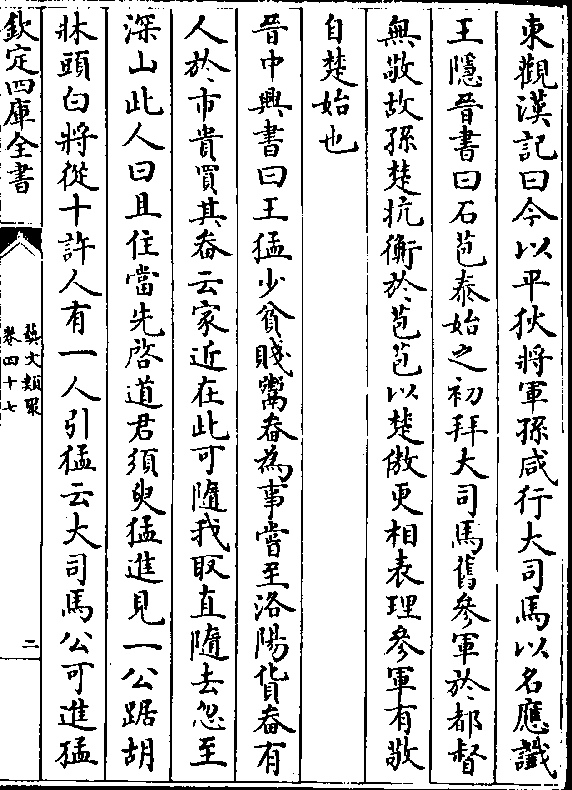 東觀漢記曰今以平狄將軍孫咸行大司馬以名應讖
王隱晉書曰石苞泰始之初拜大司馬舊參軍於都督
無敬故孫楚抗衡於苞苞以楚傲更相表理參軍有敬
自楚始也
晉中興書曰王猛少貧賤鬻畚為事嘗至洛陽貨畚有
人於市貴買其畚云家近在此可隨我取直隨去忽至
深山此人曰且住當先啓道君須臾猛進見一公踞胡
牀頭白將從十許人有一人引猛云大司馬公可進猛
欽定四庫全書
藝文類聚
卷四十七
二